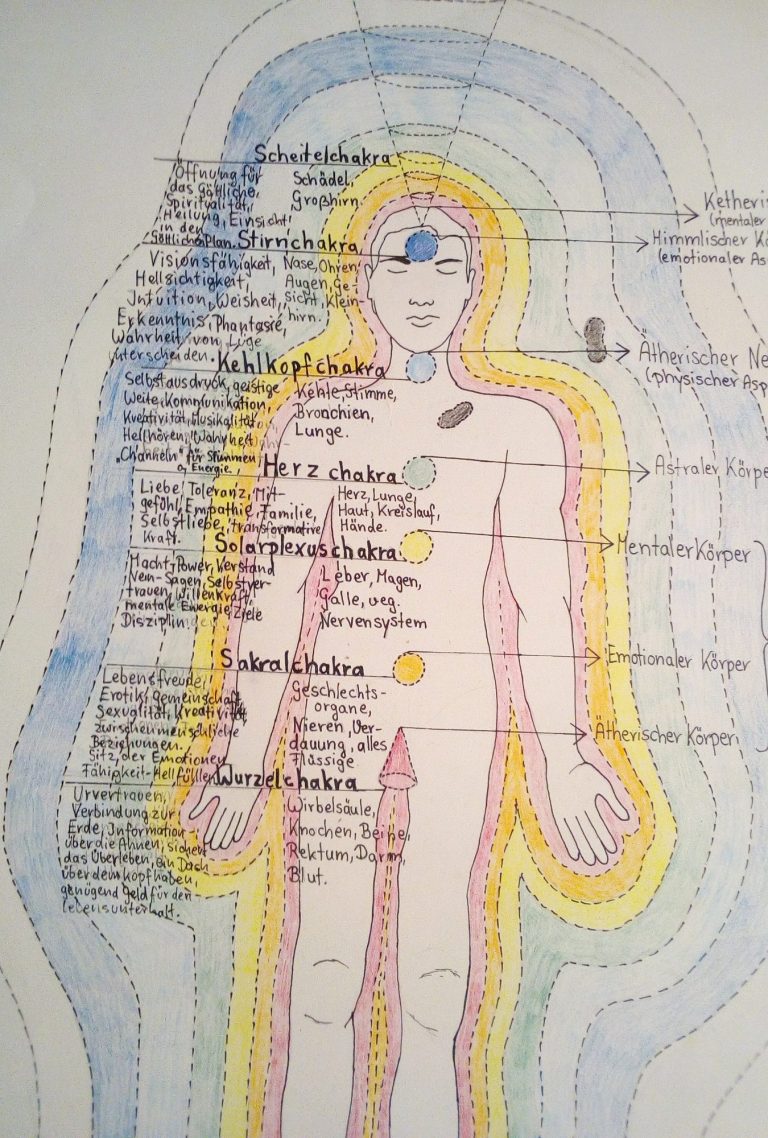 Scheitelchakra
Öffnung für
das Göttliche,
Spiritualität,
Heilung, Einsicht
in den
Göttlichen Plan.
Schädel,
Großhirn.
Stirnchakra
Visionsfähigkeit,
Hellsichtigkeit,
Intuition, Weisheit,
Erkenntnis, Phantasie,
Wahrheit von Lüge
unterscheiden.
Nase, Ohren,
Augen, Ge-
sicht, Klein-
hirn.
Kehlkopfchakra
Selbstausdruck, geistige
Weite, Kommunikation,
Kreativität, Musikalität
Hellhören, Wahrheit
"Channeln" für Stimmen
Energie.
Kehle, Stimme,
Bronchien,
Lunge.
Herzchakra
Liebe, Toleranz, Mit-
gefühl, Empathie, Familie,
Selbstliebe, transformative
Kraft.
Herz, Lunge,
Haut, Kreislauf,
Hände.
Solarplexuschakra
Macht, Power, Verstand
Nein-Sagen, Selbstver-
trauen, Willenkraft,
mentale Energie, Ziele
Disziplin.
Leber, Magen,
Galle, veg.
Nervensystem
Sakralchakra
Lebensfreude,
Erotik, gemeinschaft
Sexualität, Kreativität
zwischenmenschliche
Beziehungen.
Sitz der Emotionen
Fähigkeit-Hellfühlen
Geschlechts-
organe,
Nieren, Ver-
dauung, alles
Flüssige
Wurzelchakra
Urvertrauen,
Verbindung zur
Erde, Information
über die Ahnen, sichert
das Überleben, ein Dach
über dem Kopf haben,
genügend Geld für den
Lebensunterhalt.
Wirbelsäule,
Knochen, Beine,
Rektum, Darm,
Blut.
Ketheris
(mentaler
Himmlischer Kö
(emotionaler As
Ätherischer Ne
(physischer Asp
Astraler Körpe
Mentaler Körper
Emotionaler Körper
Ätherischer Körper